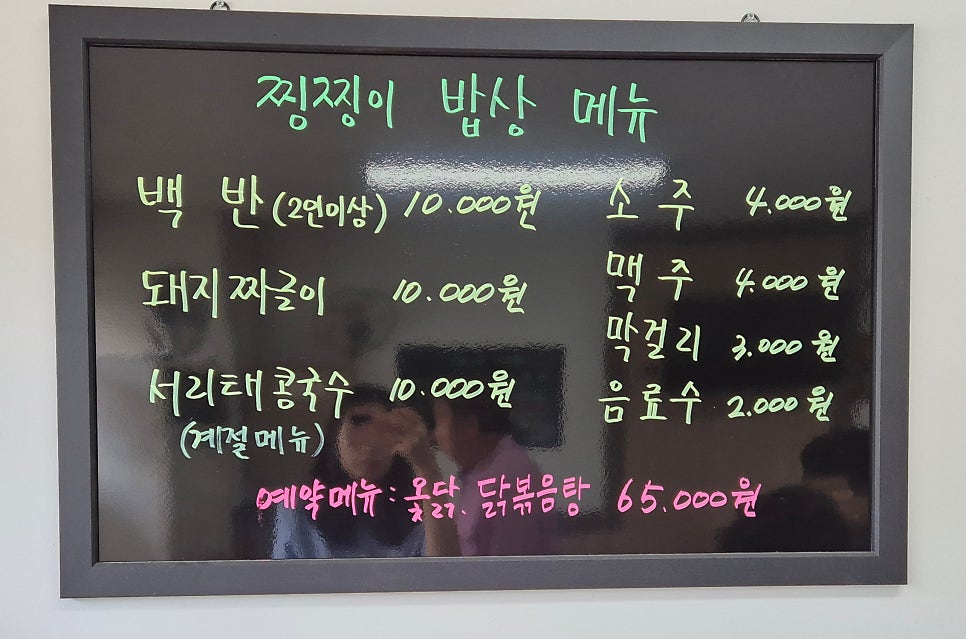 찡찡이 밥상 메뉴
백 반 (2인이상) 10.000원
돼지짜글이 10.000원
서리태콩국수 10.000원
(계절메뉴)
소 주 4.000원
맥 주 4.000원
막걸리 3.000원
음료수 2.000원
예약메뉴: 옻닭. 닭볶음탕 65.000원